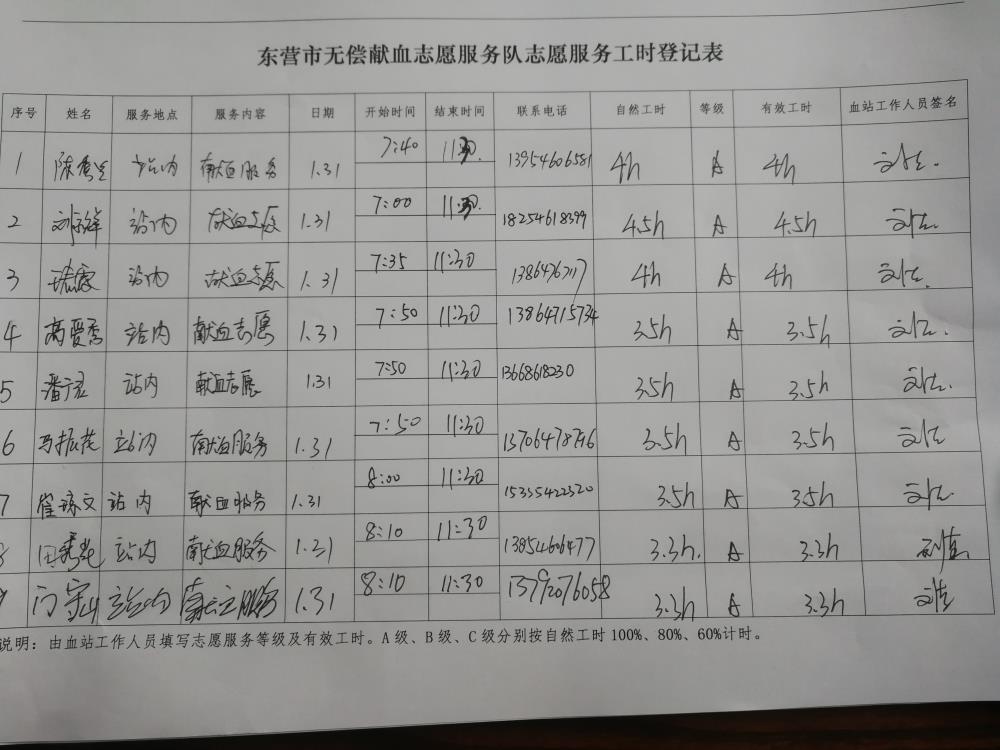 东营市无偿献血志愿服务队志愿服务工时登记表
序号 姓名 服务地点 服务内容 日期 开始时间 结束时间 联系电话 自然工时 等级 有效工时 血站工作人员签名
1 站内 献血服务 1.31 7:40 11:30. 13954606581 4h A 4h
2 站内 献血志愿 1.31 7:00 11:30. 18254618399 4.5h A 4.5h
3 站内 献血志愿 1.31 7:35 11:30 4h A 4h
4 高爱香 站内 献血志愿 1.31 7:50 11:30 13864715734 3.5h A 3.5h
5 站内 献血志愿 1.31 7:50 11:30 13668618230 3.5h A 3.5h
6 马振花 站内 献血服务 1.31 7:50 11:30 3.5h A 3.5h
7 崔琼文 站内 献血服务 1.31 8:00 11:30 15335422320 3.5h A 3.5h
8 站内 献血服务 1.31 8:10 11:30 13854606477 3.3h. A 3.3h
9 门守山 站内 献血服务 1.31 8:10 11:30 13792076058 3.3h A 3.3h
说明：由血站工作人员填写志愿服务等级及有效工时。A 级、B 级、C 级分别按自然工时 100%、80%、60%计时。